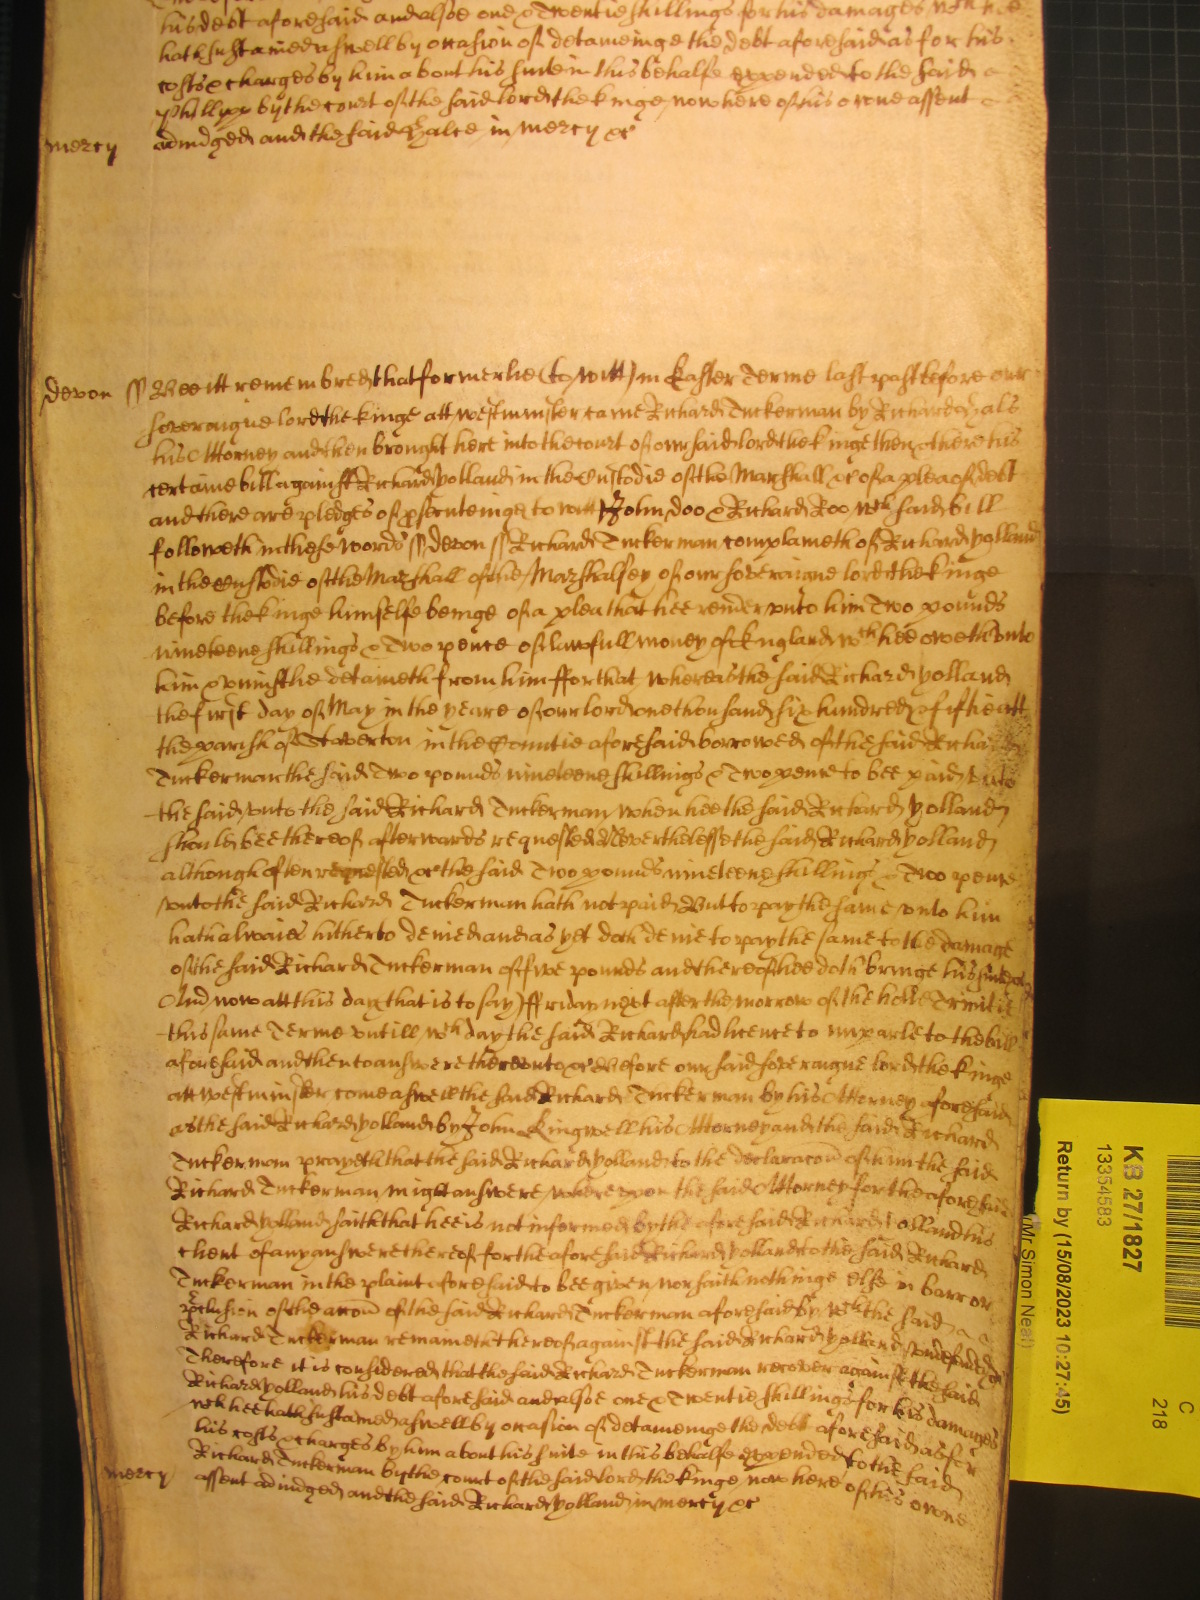 his debt aforesaid and alsoe one & Twentie shillings for his damages wch hee
hath sustained aswell by occasion of detaineinge the debt aforesaid as for his
costs & charges by him about his suite in this behalfe expended to the said
Phillipp by the court of the said lord the kinge now here of his owne assent
mercy adiudged and the said in mercy &c
Devon ss Bee itt remembred that formerlie (to witt) in Easter Terme last past before our
soveraigne lord the kinge att westminster came Richard Tuckerman by Richard
his Attorney and then brought here into the court of our said lord the kinge then & there his
certaine bill against Richard Yolland in the Custodie of the Marshall &c of a plea of debt
and there are pledges of prosecuteinge to witt John Doo & Richard Roo wch said bill
followeth in these words ss Devon ss Richard Tuckerman complaineth of Richard Yolland
in the Custodie of the Marshall of the Marshalsey of our soveraigne lord the kinge
before the kinge himselfe beinge of a plea that hee render unto him Two pounds
nineteene shillings & Two pence of lawfull money of England wch hee oweth unto
him & uniustlie detaineth from him ffor that whereas the said Richard Yolland
the first day of May in the yeare of our lord one thousand six hundred & fiftie att
the parish of Staverton in the Countie aforesaid borrowed of the said Richard
Tuckerman the said Two pounds nineteene shillings & Two pence to bee paid unto
the said unto the said Richard Tuckerman when hee the said Richard Yolland
should bee thereof afterwards requested Neverthelesse the said Richard Yolland
although often requested &c the said Two pounds nineteene shillings & Two pence
unto the said Richard Tuckerman hath not paid But to pay the same unto him
hath alwaies hitherto denied and as yet doth denie to pay the same to the damage
of the said Richard Tuckerman of five pounds and thereof hee doth bringe his suite &c
And now att this day that is to say ffriday next after the morrow of the holie Trinitie
this same Terme untill wch day the said Richard had licence to imparle to the bill
aforesaid and then to answere thereunto &c Before our said soveraigne lord the kinge
att westminster come aswell the said Richard Tuckerman by his Attorney aforesaid
as the said Richard Yolland by John Kingwell his Attorney and the said Richard
Tuckerman prayeth that the said Richard Yolland to the declaracon of him the said
Richard Tuckerman might answere whereupon the said Attorney for the aforesaid
Richard Yolland saith that hee is not informed by the aforesaid Richard Yolland his
client of any answere thereof for the aforesaid Richard Yolland to the said Richard
Tuckerman in the plaint aforesaid to bee given nor saith nothinge else in barr or
preclusion of the accon of the said Richard Tuckerman aforesaid by wch the said
Richard Tuckerman remaineth thereof against the said Richard Yolland undefended &c
Therefore it is considered that the said Richard Tuckerman recover against the said
Richard Yolland his debt aforesaid and alsoe one & Twentie shillings for his damages
wch hee hath sustained aswell by occasion of detaineinge the debt aforesaid as for
his costs & charges by him about his suite in this behalfe expended to the said
Richard Tuckerman by the court of the said lord the kinge now here of his owne
mercy assent adiudged and the said Richard Yolland in mercy &c
KB 27/1827
13354583
Return by (15/08/2023 10:27:45)
(Mr Simon Neal)
C
218